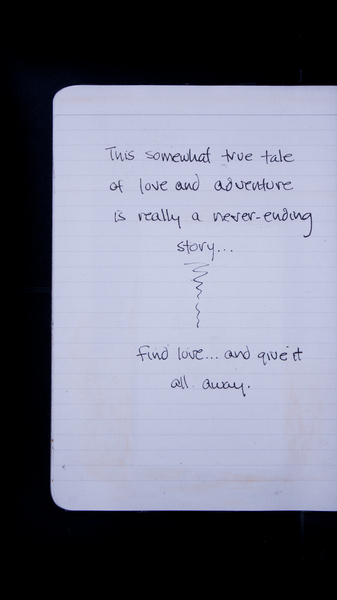 This somewhat true tale
of love and adventure
is really a never-ending
story...
find love... and give it
all away.